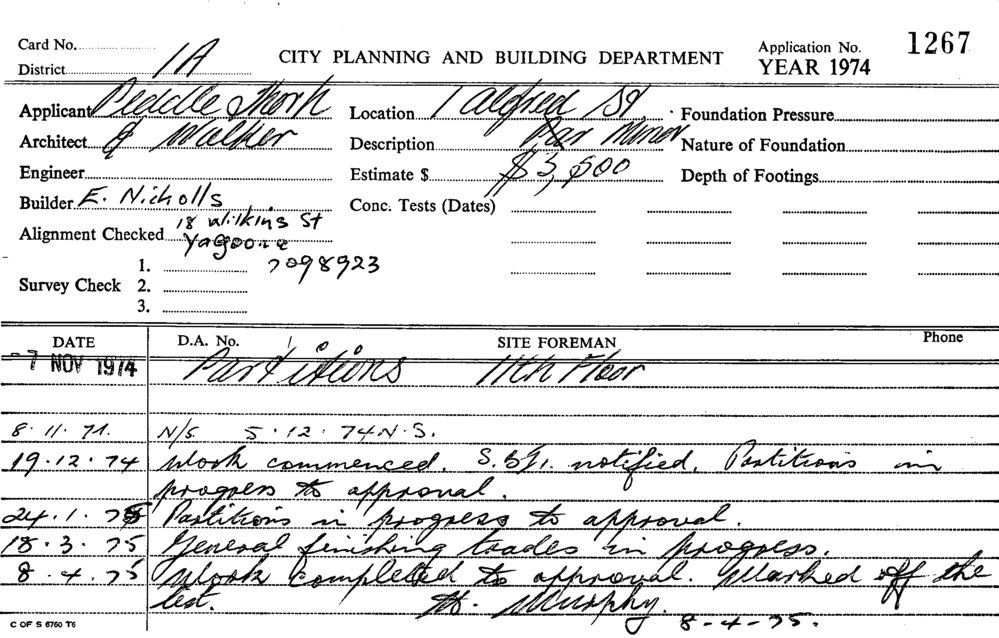 Card No.
District 1A
CITY PLANNING AND BUILDING DEPARTMENT
Application No. 1267
YEAR 1974
Applicant Peddle Thorp
Architect & Walker
Engineer
Builder E. Nicholls
18 Wilkins St
Alignment Checked Yagoona
7098923
Survey Check 1.
2.
3.
Location 1 Alfred St
Description Par Minor
Estimate $ $3,500
Conc. Tests (Dates)
Foundation Pressure
Nature of Foundation
Depth of Footings
DATE D.A. No. SITE FOREMAN Phone
-7 NOV 1974 Partitions 11th Floor
8.11.74. N/S. 5.12.74 N.S.
19.12.74 Work commenced. notified. Partitions in
progress to approval.
24.1.75 Partitions in progress to approval.
18.3.75 General finishing trades in progress.
8.4.75 Work completed to approval. Marked off the
list. H. Murphy.
8-4-75.
C OF S 6760 T6